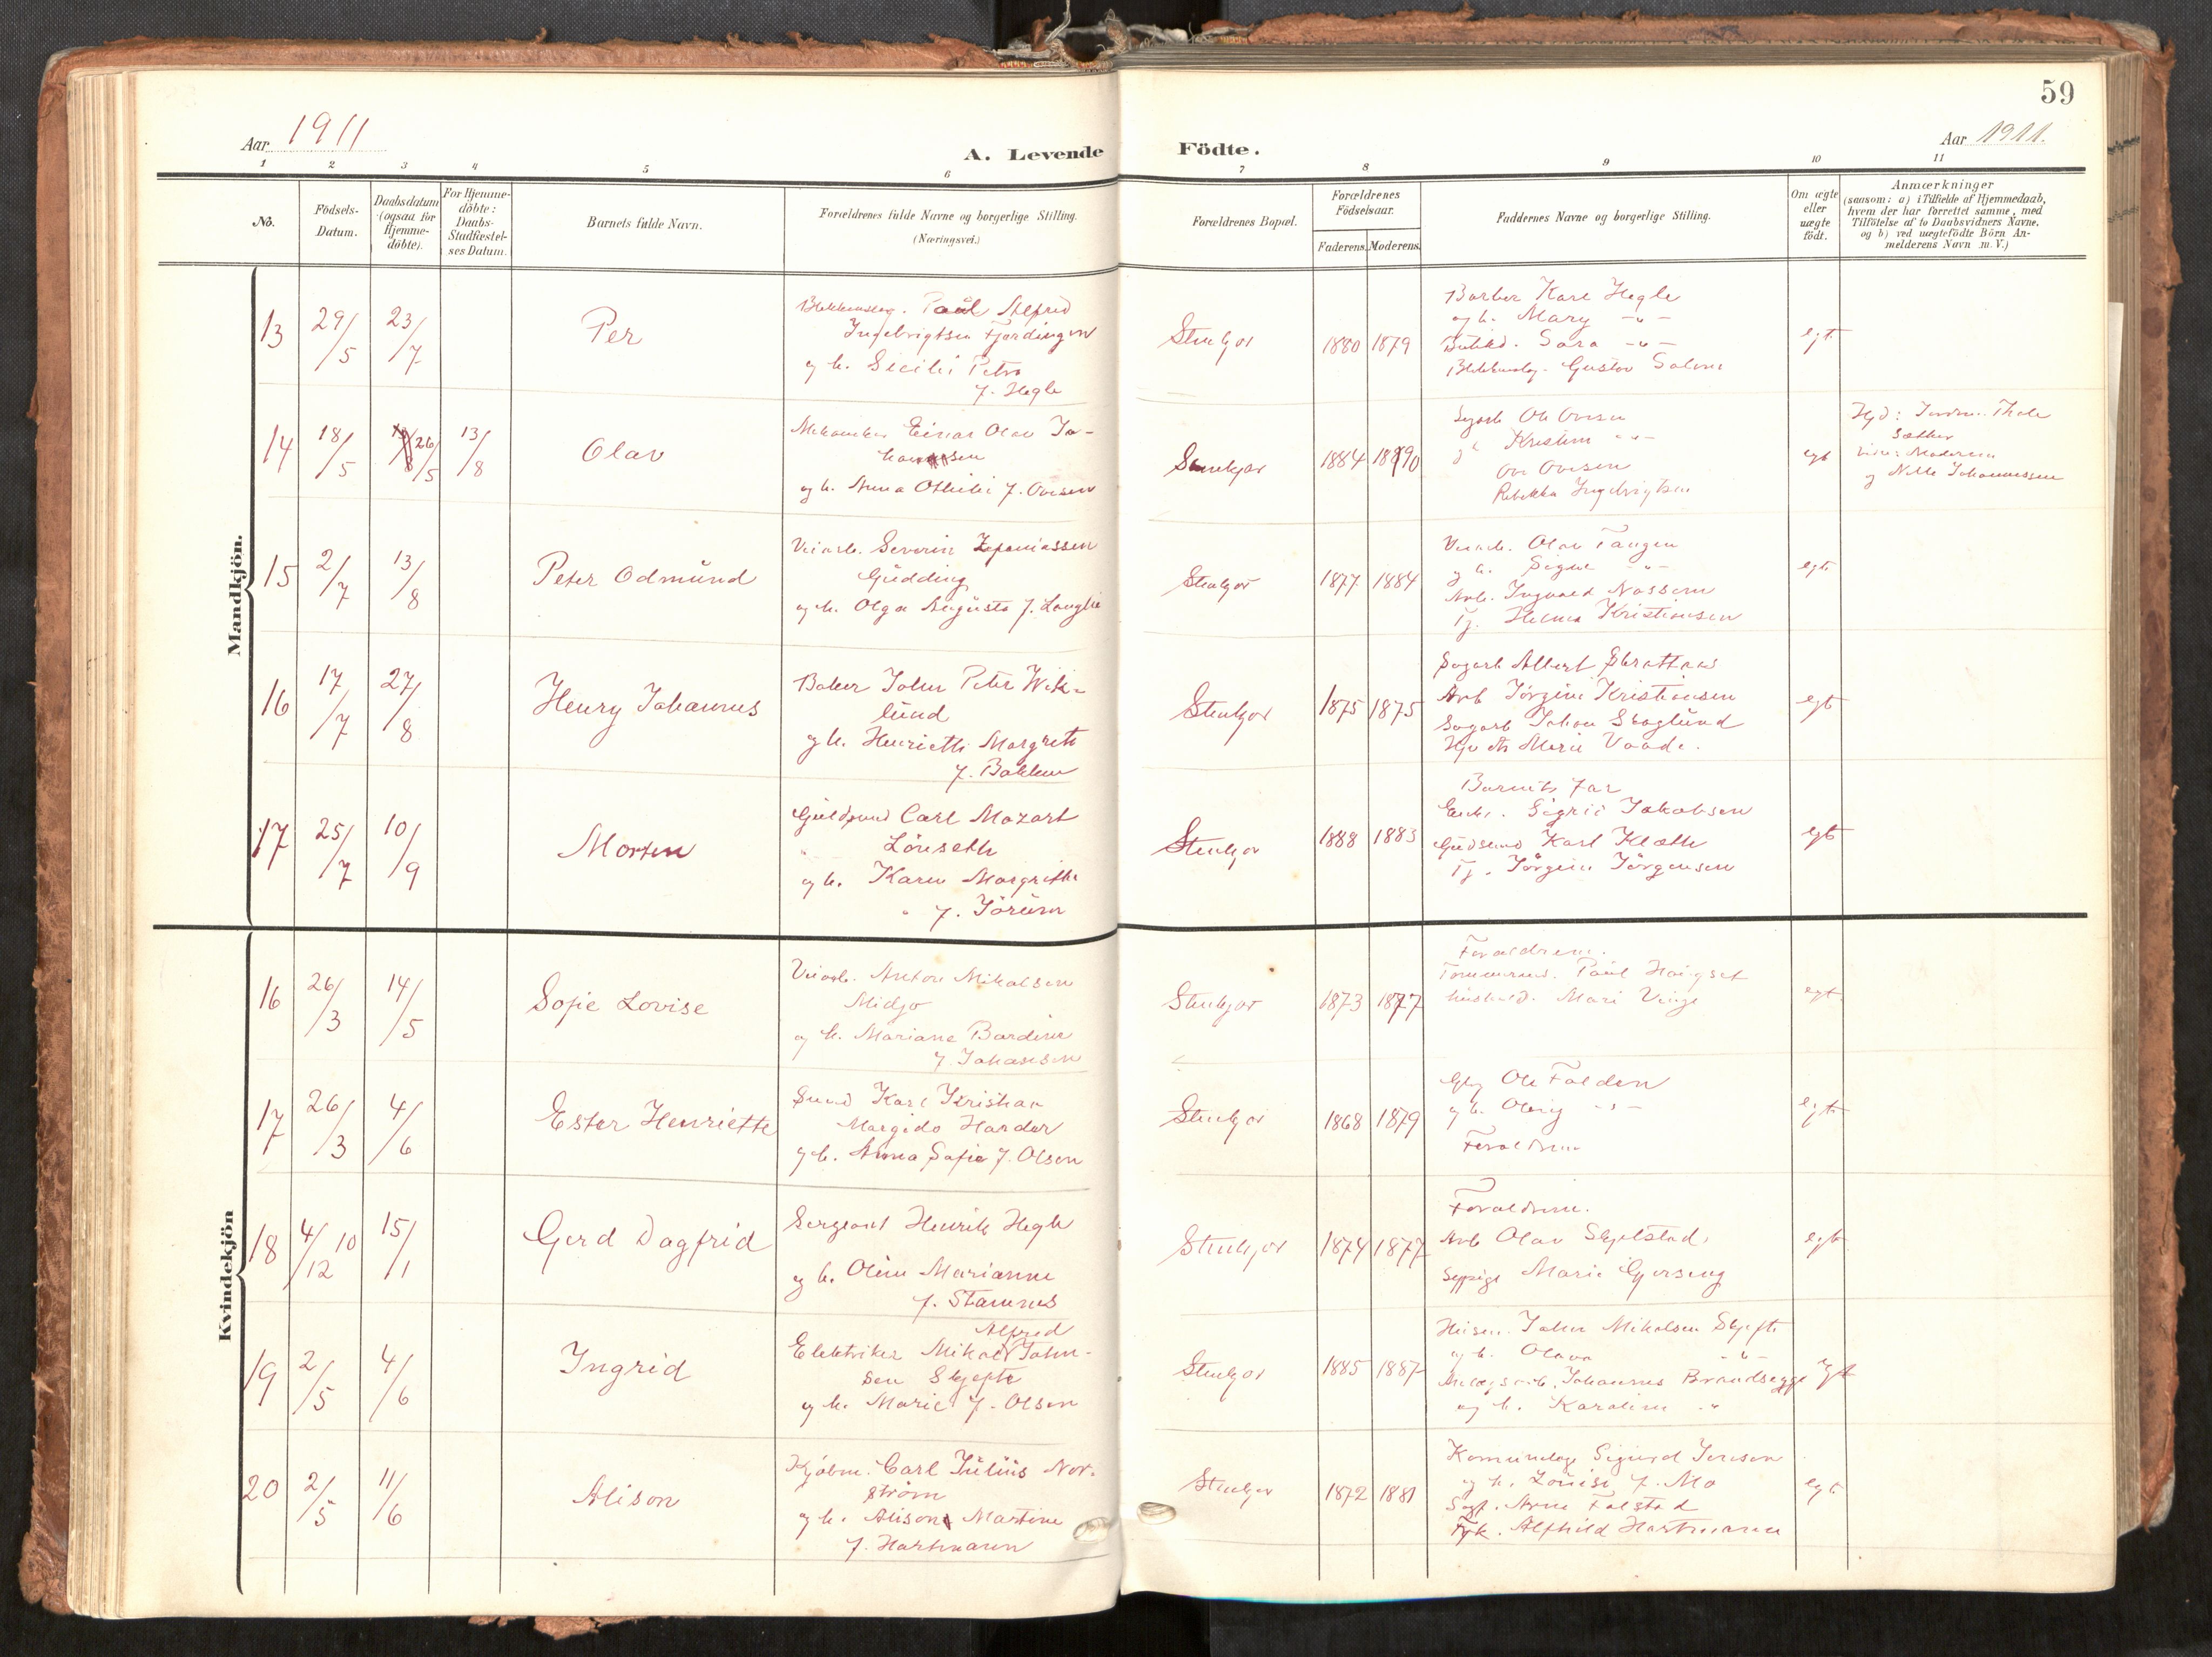 59
Aar 1911
Aar 1911.
A. Levende Födte.
1 2 3 4 5 6 7 8 9 10 11
No.
Födsels-
Datum.
Daabsdatum
(ogsaa for
Hjemme-
döbte).
For Hjemme-
döbte:
Daabs-
Stadfæstel-
ses Datum.
Barnets fulde Navn.
Forældrenes fulde Navne og borgerlige Stilling.
(Næringsvei.)
Forældrenes Bopæl.
Forældrenes
Födselsaar.
Faderens. Moderens.
Faddernes Navne og borgerlige Stilling.
Om ægte
eller
uægte
födt.
Anmærkninger
(saasom: a) i Tilfælde af Hjemmedaab,
hvem der har forrettet samme, med
Tilföielse af to Daabsvidners Navne,
og b) ved uægtefödte Börn An-
melderens Navn m. V.)
Mandkjön.
13 29/5 23/7
Per
Paul Alfred
Ingebrigtsen Fjordingen
og h. Sicilie Petra
f. Hegle
Stenkjær
1880 1879
Barber Karl Hegle
og h. Mary -"-
Sara -"-
Gustav
egt.
14 18/5 26/5 13/8
Olav
Mekaniker Einar Olav Jo-
hansen
og h. Anna Othilie f. Ovesen
Stenkjær
1884 1890
Ole Ovesen
Kristine -"-
Ove Ovesen
Rebekka Ingebrigtsen
egt
Hjd: Jordm. Thale
Sæther
Vidn: Moderen
og Nelle Johannessen
15 2/7 13/8
Peter Odmund
Veiarb. Severin Zefaniassen
Gudding
og h. Olga Augusta f. Langlie
Stenkjær
1877 1884
Veiarb. Olav Tangen
og h. Signe -"-
Arb. Ingvald Nossum
Tj. Helma Kristiansen
egt.
16 17/7 27/8
Henry Johannes
Baker John Peter Wik-
lund
og h. Henriette Margrete
f. Bakken
Stenkjær
1875 1875
Sagarb Albert Skrattaas
Arb Jörgine Kristiansen
Sagarb Johan Skoglund
Marie Vaade.
egt
17 25/7 10/9
Morten
Guldsmed Carl Mozart
Lönseth
og h. Karen Margrethe
f. Jörum
Stenkjær
1888 1883
Barnets far
Enke. Sigrid Jakobsen
Guldsmed Karl Klæth
Tj. Jörgine Jörgensen
egt
Kvindekjön
16 26/3 14/5
Sofie Lovise
Veiarb. Anton Mikalsen
Midjo
og h. Mariane Bardine
f. Johansen
Stenkjær
1873 1877
Forældrene.
Tömmerm. Paul Haugset
hushold. Mari Vinje
egt.
17 26/3 4/6
Ester Henriette
Smed Karl Kristian
Margido Harder
og h. Anna Sofie f. Olsen
Stenkjær
1868 1879
Ole Folden
og h. -"-
Forældrene
egt.
18 4/12 10 15/1
Gerd Dagfrid
Sergeant Henrik Hegle
og h. Oline Marianne
f. Stamnes
Stenkjær
1874 1877
Forældrene.
Arb Olav Skjelstad
Sypige Marie Gjersing
egt
19 2/5 4/6
Ingrid
Alfred
Elektriker Mikal John-
sen Skjefte
og h. Marie f. Olsen
Stenkjær
1885 1887
Husm. John Mikalsen Skjefte
og h. Olava -"-
Anlægsarb. Johannes Brandsegge
og h. Karoline -"-
egt
20 2/5 11/6
Alison
Kjöbm. Carl Julius Nor-
ström
og h. Alison Martine
f. Hartmann
Stenkjær
1872 1881
Sigurd Iversen
og h. Louise f. Mo
Sagf. Arne Falstad
Frk. Alfhild Hartmann
egt.